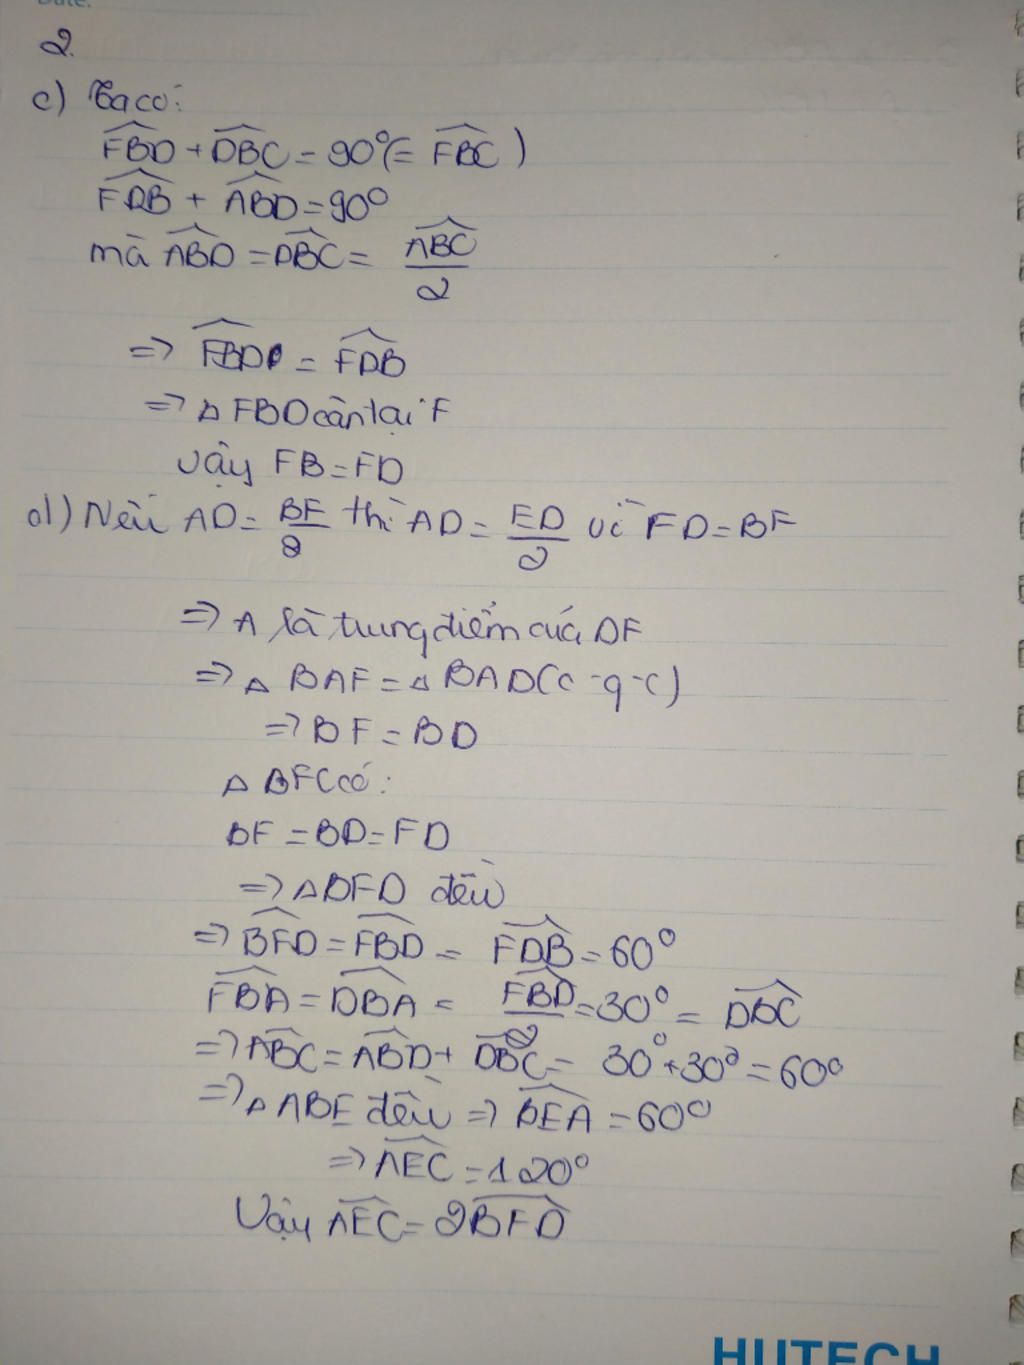 Date:
2.
c) Ta có:
FBD + DBC = 90° (= FBC)
FDB + ABD = 90°
mà ABD = DBC = ABC/2
=> FBD = FDB
=> △ FBD cân tại F
Vậy FB = FD
d) Nếu AD = BF/2 thì AD = FD/2 vì FD = BF
=> A là trung điểm của DF
=> △ BAF = △ BAD (c-g-c)
=> BF = BD
△ BFC có:
BF = BD = FD
=> △BFD đều
=> BFD = FBD = FDB = 60°
FBA = DBA = FBD/2 = 30° = DBC
=> ABC = ABD + DBC = 30° + 30° = 60°
=> △ ABE đều => BEA = 60°
=> AEC = 120°
Vậy AEC = 2BFD
HUTECH